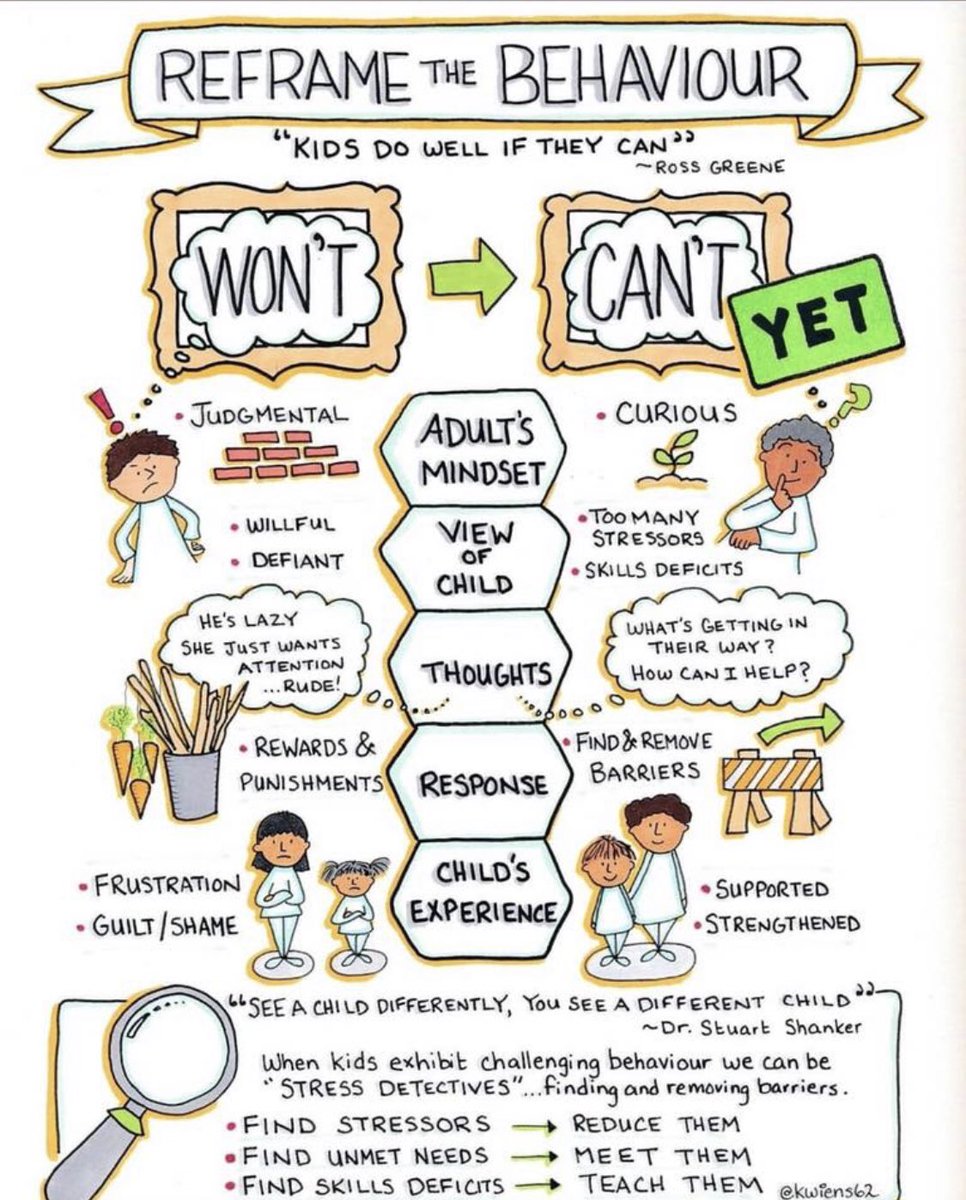 REFRAME THE BEHAVIOUR
"KIDS DO WELL IF THEY CAN"
~ROSS GREENE
WON'T
CAN'T
YET
!
?
• JUDGMENTAL
ADULT'S
MINDSET
• CURIOUS
• WILLFUL
• DEFIANT
VIEW
OF
CHILD
• TOO MANY
STRESSORS
• SKILLS DEFICITS
HE'S LAZY
SHE JUST WANTS
ATTENTION
...RUDE!
THOUGHTS
WHAT'S GETTING IN
THEIR WAY?
HOW CAN I HELP?
• REWARDS &
PUNISHMENTS
RESPONSE
• FIND & REMOVE
BARRIERS
• FRUSTRATION
• GUILT/SHAME
CHILD'S
EXPERIENCE
• SUPPORTED
• STRENGTHENED
"SEE A CHILD DIFFERENTLY, YOU SEE A DIFFERENT CHILD"
~Dr. Stuart Shanker
When kids exhibit challenging behaviour we can be
"STRESS DETECTIVES"...finding and removing barriers.
• FIND STRESSORS → REDUCE THEM
• FIND UNMET NEEDS → MEET THEM
• FIND SKILLS DEFICITS → TEACH THEM
@kwiens62